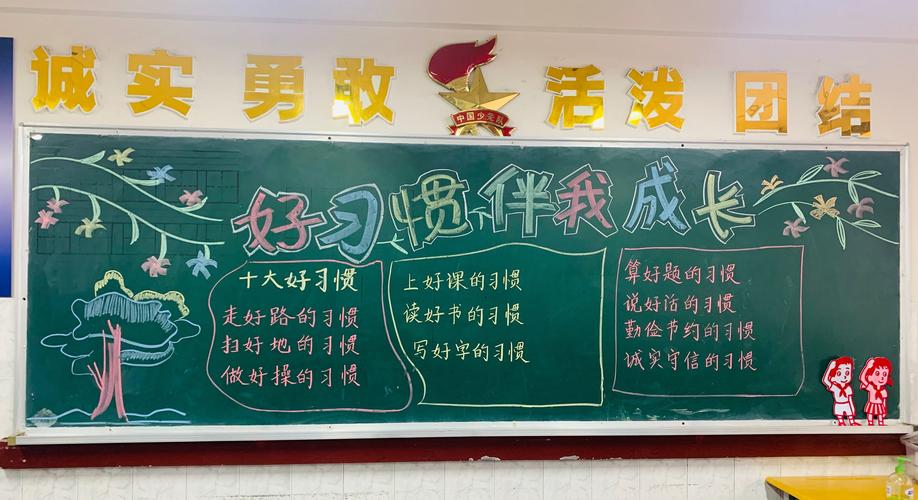 诚实 勇敢 活泼 团结
中国少先队
好习惯伴我成长
十大好习惯
走好路的习惯
扫好地的习惯
做好操的习惯
上好课的习惯
读好书的习惯
写好字的习惯
算好题的习惯
说好话的习惯
勤俭节约的习惯
诚实守信的习惯